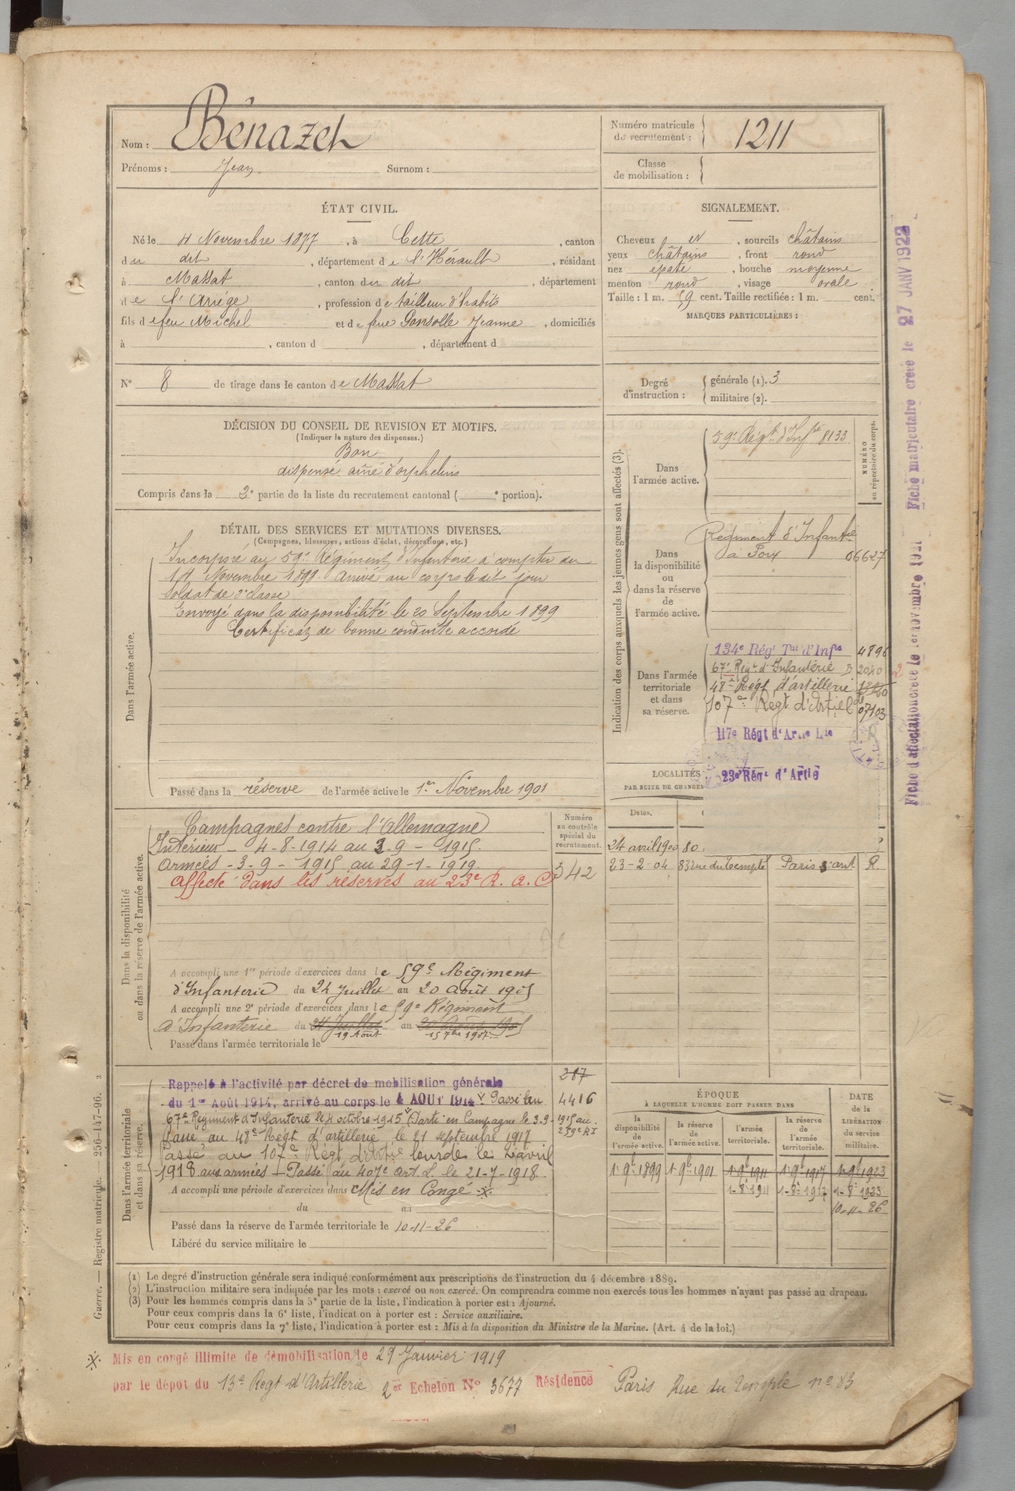 Nom : Bénazeh
Prénoms : Jean Surnom :
Numéro matricule
du recrutement : 1211
Classe
de mobilisation :
ÉTAT CIVIL.
Né le 4 Novembre 1877, à Cette, canton
du dit, département de l'Hérault, résidant
à Massat, canton du dit, département
de l'Ariège, profession de tailleur d'habits
fils de feu Michel et de feue Gonsolle Jeanne, domiciliés
à , canton d , département d
N° 8 de tirage dans le canton de Massat
SIGNALEMENT.
Cheveux et, sourcils châtains
yeux châtains, front rond
nez épaté, bouche moyenne
menton rond, visage ovale
Taille : 1 m. 59 cent. Taille rectifiée : 1 m. cent.
MARQUES PARTICULIÈRES :
Degré
d'instruction :
générale (1). 3
militaire (2).
DÉCISION DU CONSEIL DE REVISION ET MOTIFS.
(Indiquer la nature des dispenses.)
Bon
dispensé aîné d'orphelins
Compris dans la 2e partie de la liste du recrutement cantonal ( e portion).
DÉTAIL DES SERVICES ET MUTATIONS DIVERSES.
(Campagnes, blessures, actions d'éclat, décorations, etc.)
Dans l'armée active.
Incorporé au 59e Régiment d'Infanterie à compter du
Novembre 1899 Arrivé au corps le dit jour
Soldat de 2e classe
Envoyé dans la disponibilité le 20 Septembre 1899
Certificat de bonne conduite accordé
Passé dans la réserve de l'armée active le 1er Novembre 1901
Indication des corps auxquels les jeunes gens sont affectés (3).
NUMÉRO
au répertoire du corps.
Dans
l'armée active.
59e Régt d'Infie 8133
Dans
la disponibilité
ou
dans la réserve
de
l'armée active.
Régiment d'Infantie
à Foix 06627
Dans l'armée
territoriale
et dans
sa réserve.
134e Rég Tal d'Infie 4896
67e Régt d'Infanterie D. 2040
48e Régt d'artillerie
107e Régt d'Artie 07103
117e Régt d'Artie Lde
23e Régt d'Artie
LOCALITÉS
PAR SUITE DE CHANGE
Dates.
24 avril 1900 80
23-2-04 83 rue du Temple Paris 3e arrt R
Dans la disponibilité
ou dans la réserve de l'armée active.
Numéro
au contrôle
spécial du
recrutement.
342
Campagnes contre l'Allemagne
Intérieur - 4-8-1914 au 3-9-1915.
Armées - 3-9-1915 au 29-1-1919.
Affecté dans les réserves au 23e R.A.C
A accompli une 1re période d'exercices dans le 59e Régiment
d'Infanterie du 24 Juillet au 20 Août 1905
A accompli une 2e période d'exercices dans le 59e Régiment
d'Infanterie du 24 Juillet au 20 Août 1905
19 Août 15 7bre 1907
Passé dans l'armée territoriale le
Dans l'armée territoriale
et dans sa réserve.
217
4416
Rappelé à l'activité par décret de mobilisation générale
du 1er Août 1914, arrivé au corps le 4 AOUT 1914 Passé au
67e Régiment d'Infanterie le 4 octobre 1915 Parti en Campagne le 3-9-1915 au
Passé au 48e Régt d'artillerie le 21 septembre 1917
Passé au 107e Régt d'Artie lourde le 2 avril
1918 aux armées - Passé au 407e art L. le 21-7-1918
A accompli une période d'exercices dans Mis en Congé ※
du au
Passé dans la réserve de l'armée territoriale le 10-11-26
Libéré du service militaire le
ÉPOQUE
À LAQUELLE L'HOMME DOIT PASSER DANS
DATE
de la
LIBÉRATION
du service
militaire.
la
disponibilité
de
l'armée active.
la réserve
de
l'armée active.
l'armée
territoriale.
la réserve
de
l'armée
territoriale.
1 9b 1899 1 9b 1901 1 9b 1911 1 9b 1917 1 9b 1923
1-8 1911 1-8 1917 1-8 1923
10-11-26
(1) Le degré d'instruction générale sera indiqué conformément aux prescriptions de l'instruction du 4 décembre 1889.
(2) L'instruction militaire sera indiquée par les mots : exercé ou non exercé. On comprendra comme non exercés tous les hommes n'ayant pas passé au drapeau.
(3) Pour les hommes compris dans la 5e partie de la liste, l'indication à porter est : Ajourné.
Pour ceux compris dans la 6e liste, l'indication à porter est : Service auxiliaire.
Pour ceux compris dans la 7e liste, l'indication à porter est : Mis à la disposition du Ministre de la Marine. (Art. 4 de la loi.)
※ Mis en congé illimité de démobilisation le 29 Janvier 1919
par le dépôt du 13e Régt d'Artillerie 2er Echelon N° 3677 Résidence Paris Rue du Temple n° 83
Guerre. — Registre matricule. 256-147-96.
Fiche d'affectation créée le 1er novembre 1921 Fiche matriculaire créée le 27 JANV 1922